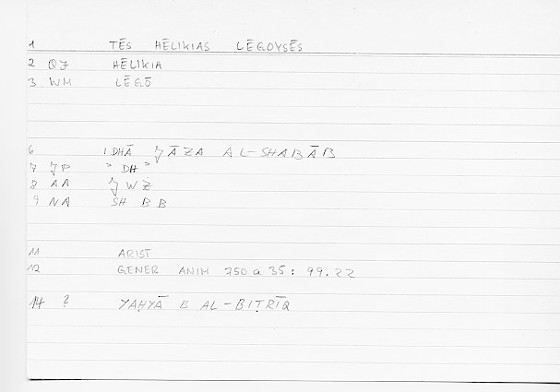 1 TĒS HĒLIKIAS LĒGOYSĒS
2 QJ HĒLIKIA
3 WM LĒGŌ
6 IDHĀ ǦĀZA AL-SHABĀB
7 ǦP ʾ DH ʾ
8 AA ǦWZ
9 NA SH B B
11 ARIST
12 GENER ANIM 750 a 35 : 99.22
14 ? YAḤYĀ B AL-BIṬRĪQ